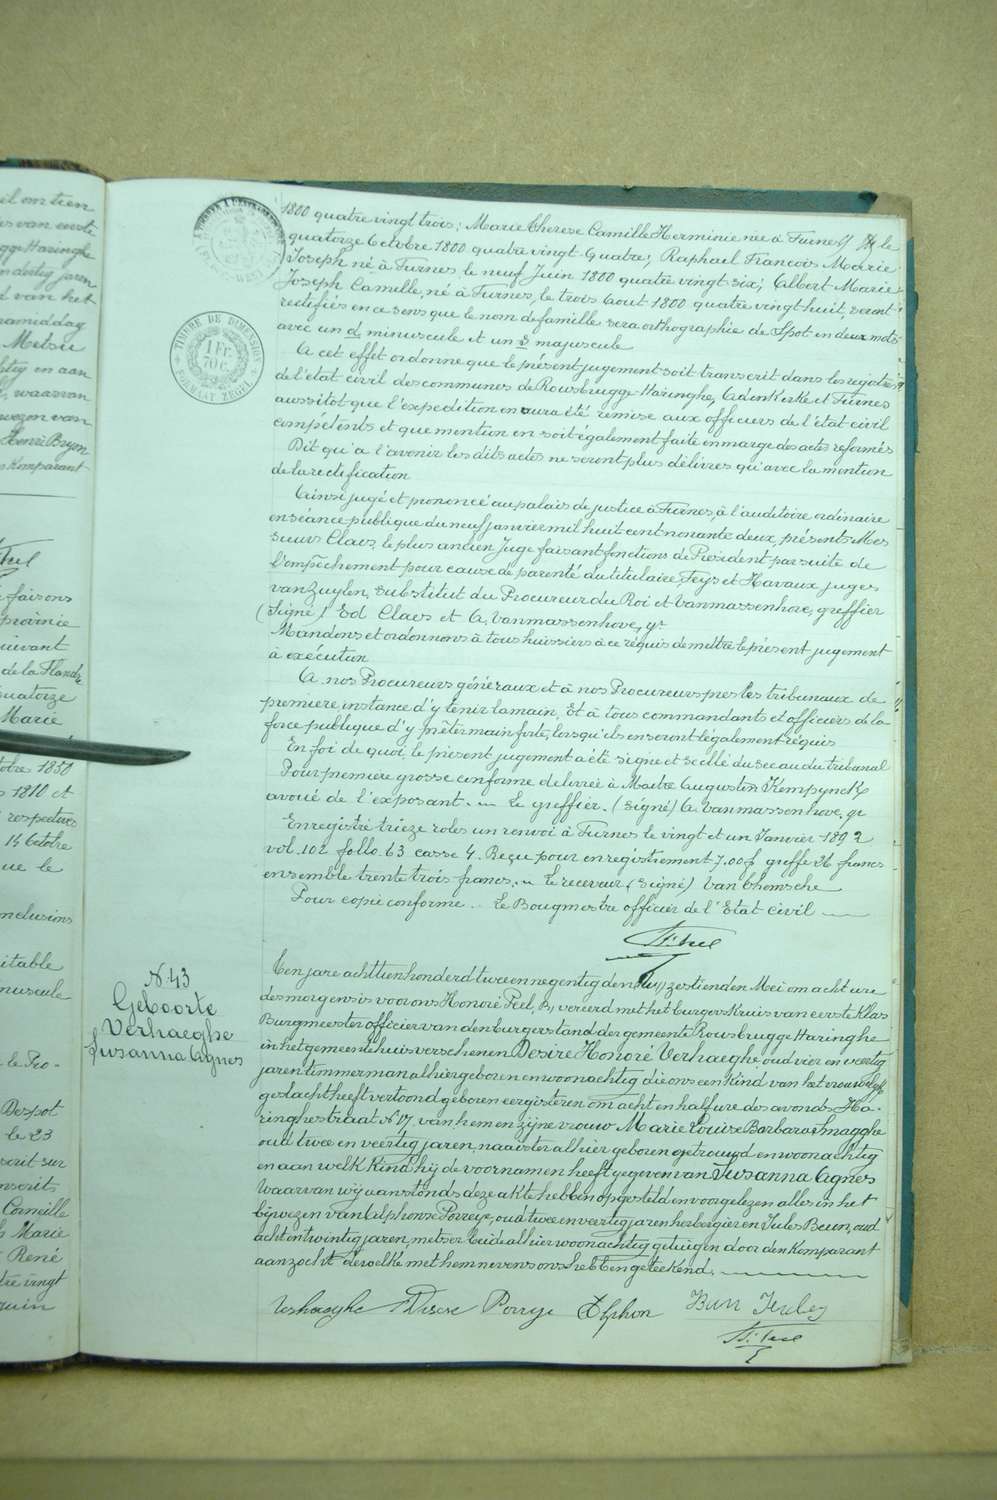 il om tien
es van eerste
gge Haringhe
en dertig jaren
d van het
namiddag
Metsu
htig en aan
, waarvan
wezen van
Henri Brym
s Komparant
faisons
province
suivant
de la Flandre
quatorze
Marie
tobre 1850
1810 et
respectives
14 Octobre
que le
onclusions
itable
nuscule
le Pro-
Despot
le 23
scrit sur
nscrits
Camille
h Marie
René
tre vingt
quin
TIMBRE DE DIMENSION
1 Fr.
70 C.
FORMAAT ZEGEL
1800 quatre vingt trois; Marie Therese Camille Herminie née à Furnes le
quatorze Octobre 1800 quatre vingt-Quatre; Raphael François Marie
Joseph né à Furnes, le neuf Juin 1800 quatre vingt six; Albert Marie
Joseph Camille, né à Furnes, le trois Aout 1800 quatre vingt huit, seront
rectifiés en ce sens que le nom de famille sera orthographie de Spot en deux mots
avec un d minuscule et un S majuscule
A cet effet ordonne que le présent jugement soit transcrit dans les registres
de l'état civil des communes de Rousbrugge-Haringhe, Oudenkerke et Furnes
aussitot que l'expedition en aura été remise aux officiers de l'état civil
compétents et que mention en soit également faite en marge des actes reformés
Dit qu'a l'avenir les dits actes ne seront plus délivres qu'avec la mention
de la rectification
Ainsi jugé et prononcé au palais de justice à Furnes, à l'auditoire ordinaire
en séance publique du neuf janvier mil huit cent nonante deux, présents Mes
sieurs Claes, le plus ancien Juge faisant fonctions de Président par suite de
l'empêchement pour cause de parenté du titulaire, Feys et Havaux juges
van Zuylen, substitut du Procureur du Roi et Vanmassenhove, greffier
(Signé) Ed Claes et A. Vanmassenhove, gr
Mandons et ordonnons à tous huissiers à ce réquis de mettre le présent jugement
à exécution
A nos Procureurs généraux et à nos Procureurs pres les tribunaux de
premiere instance d'y tenir la main, Et à tous commandants et officiers de la
force publique d'y prêter main forte, lorsqu'ils en seront légalement réquis
En foi de quoi, le présent jugement a été signe et scellé du sceau du tribunal
Pour premiere grosse conforme delivrée à Maitre Augustin Kempynck
avoué de l'exposant. — Le greffier. (Signé) A. Vanmassenhove, gr
Enregistré trieze roles un renvoi à Furnes le vingt et un Janvier 1892
vol. 102 follo. 63 casse 4. Reçu pour enregistrement 7.00 f greffe 26 francs
ensemble trente trois francs. — Le receveur (signé)
Pour copie conforme. — Le Bougmestre officier de l'Etat Civil
N. 43
Geboorte
Verhaeghe
Susanna Agnes
Ten jare achttien honderd twee en negentig den zestienden Mei om acht ure
des morgens is voor ons Honoré Peel, vereerd met het burgers Kruis van eerste Klas
Burgmeester officier van den burgerstand der gemeente Rousbrugge Haringhe
in het gemeentehuis verschenen Desiré Honoré Verhaeghe, oud vier en veertig
jaren timmerman alhier geboren en woonachtig die ons een Kind van het vrouwelyk
geslacht heeft vertoond geboren eergisteren om acht en half ure des avonds Ha-
ringhestraat N 17, van hem en zijne vrouw Marie Louise Barbara Smagghe
oud twee en veertig jaren, naaister alhier geboren getrouwd en woonachtig
en aan welk Kind hij de voornamen heeft gegeven van Susanna Agnes
Waarvan wij aanstonds deze akte hebben opgesteld en voorgelezen alles in het
bijwezen van Alphonse Porreye, oud twee en veertig jaren herbergier en Jules Beun, oud
acht en twintig jaren, metser beide alhier woonachtig getuigen door den Komparant
aanzocht dewelke met hem nevens ons hebben geteekend.
Verhaeghe Disere Porreye Alphon Bun Jules